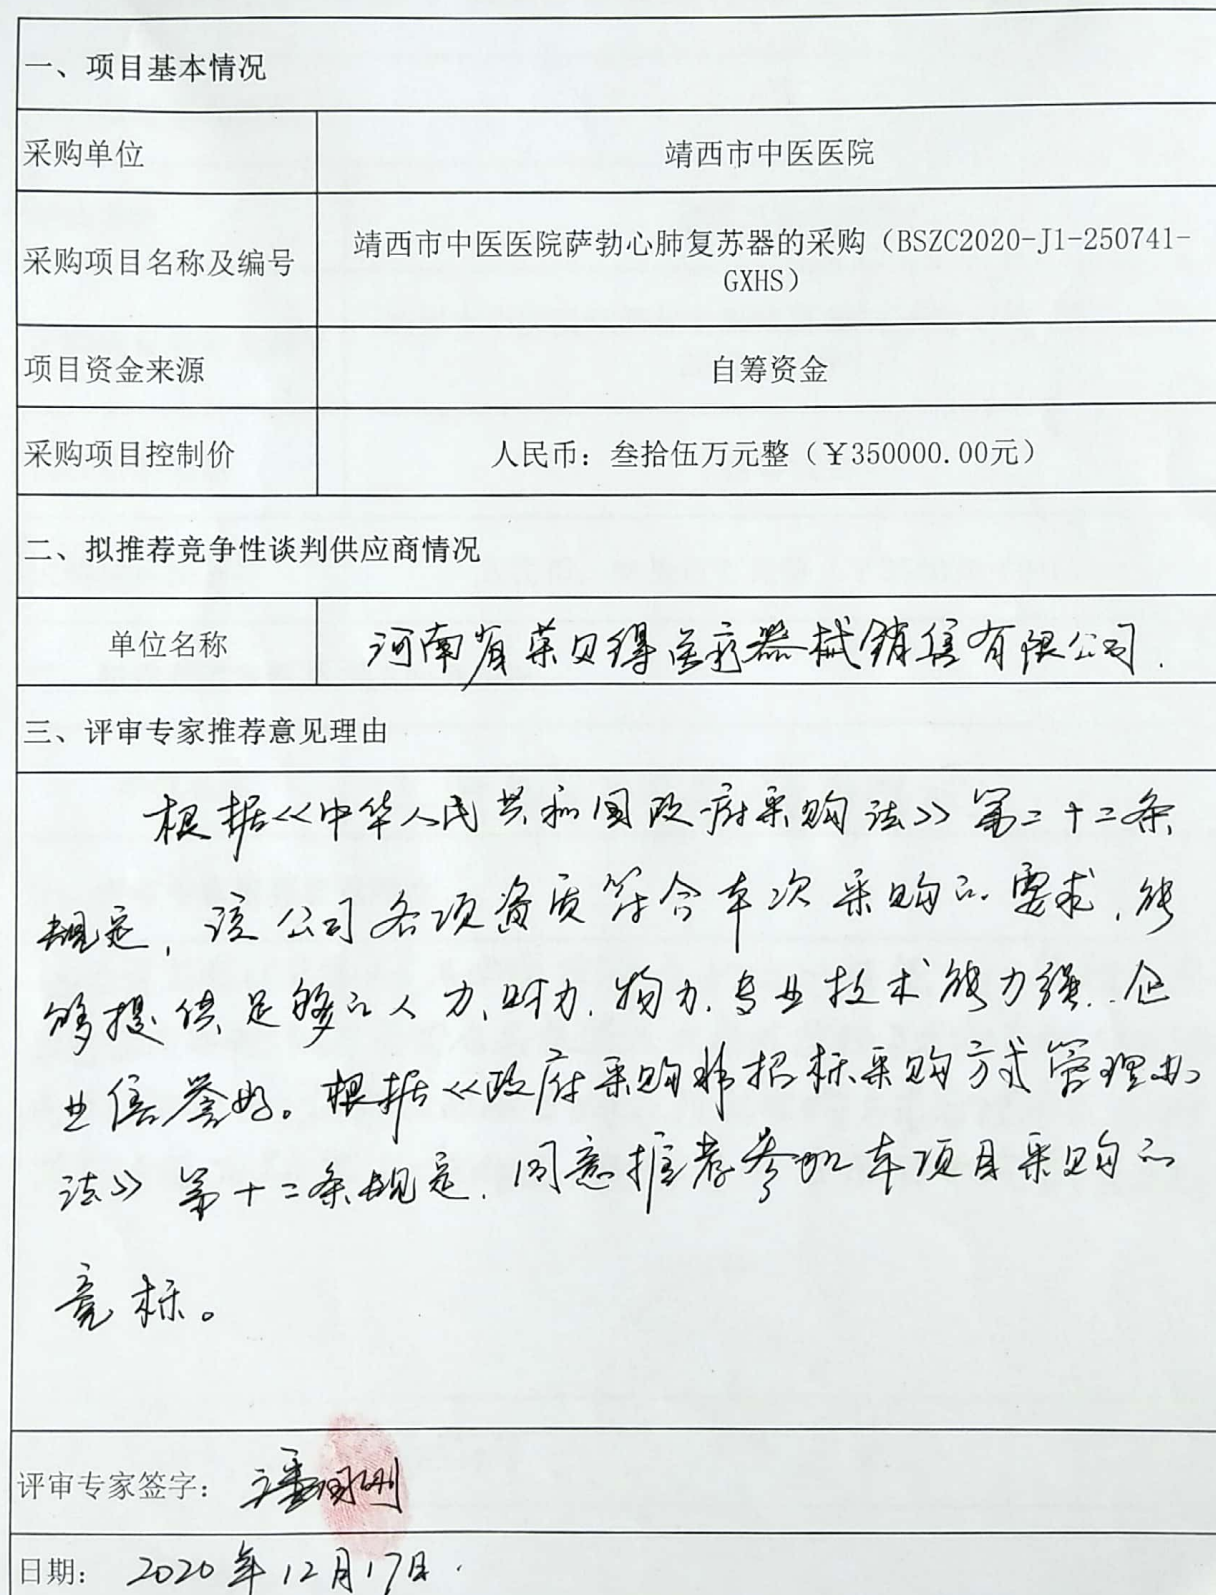 一、项目基本情况
采购单位
靖西市中医医院
采购项目名称及编号
靖西市中医医院萨勃心肺复苏器的采购（BSZC2020-J1-250741-
GXHS）
项目资金来源
自筹资金
采购项目控制价
人民币：叁拾伍万元整（￥350000.00元）
二、拟推荐竞争性谈判供应商情况
单位名称
河南省莱贝得医疗器械销售有限公司.
三、评审专家推荐意见理由
根据《中华人民共和国政府采购法》第二十二条
规定，该公司各项资质符合本次采购的要求，能
够提供足够的人力、财力、物力，专业技术能力强，企
业信誉好。根据《政府采购非招标采购方式管理办
法》第十二条规定，同意推荐参加本项目采购的
竞标。
评审专家签字：潘
日期：2020年12月17日.